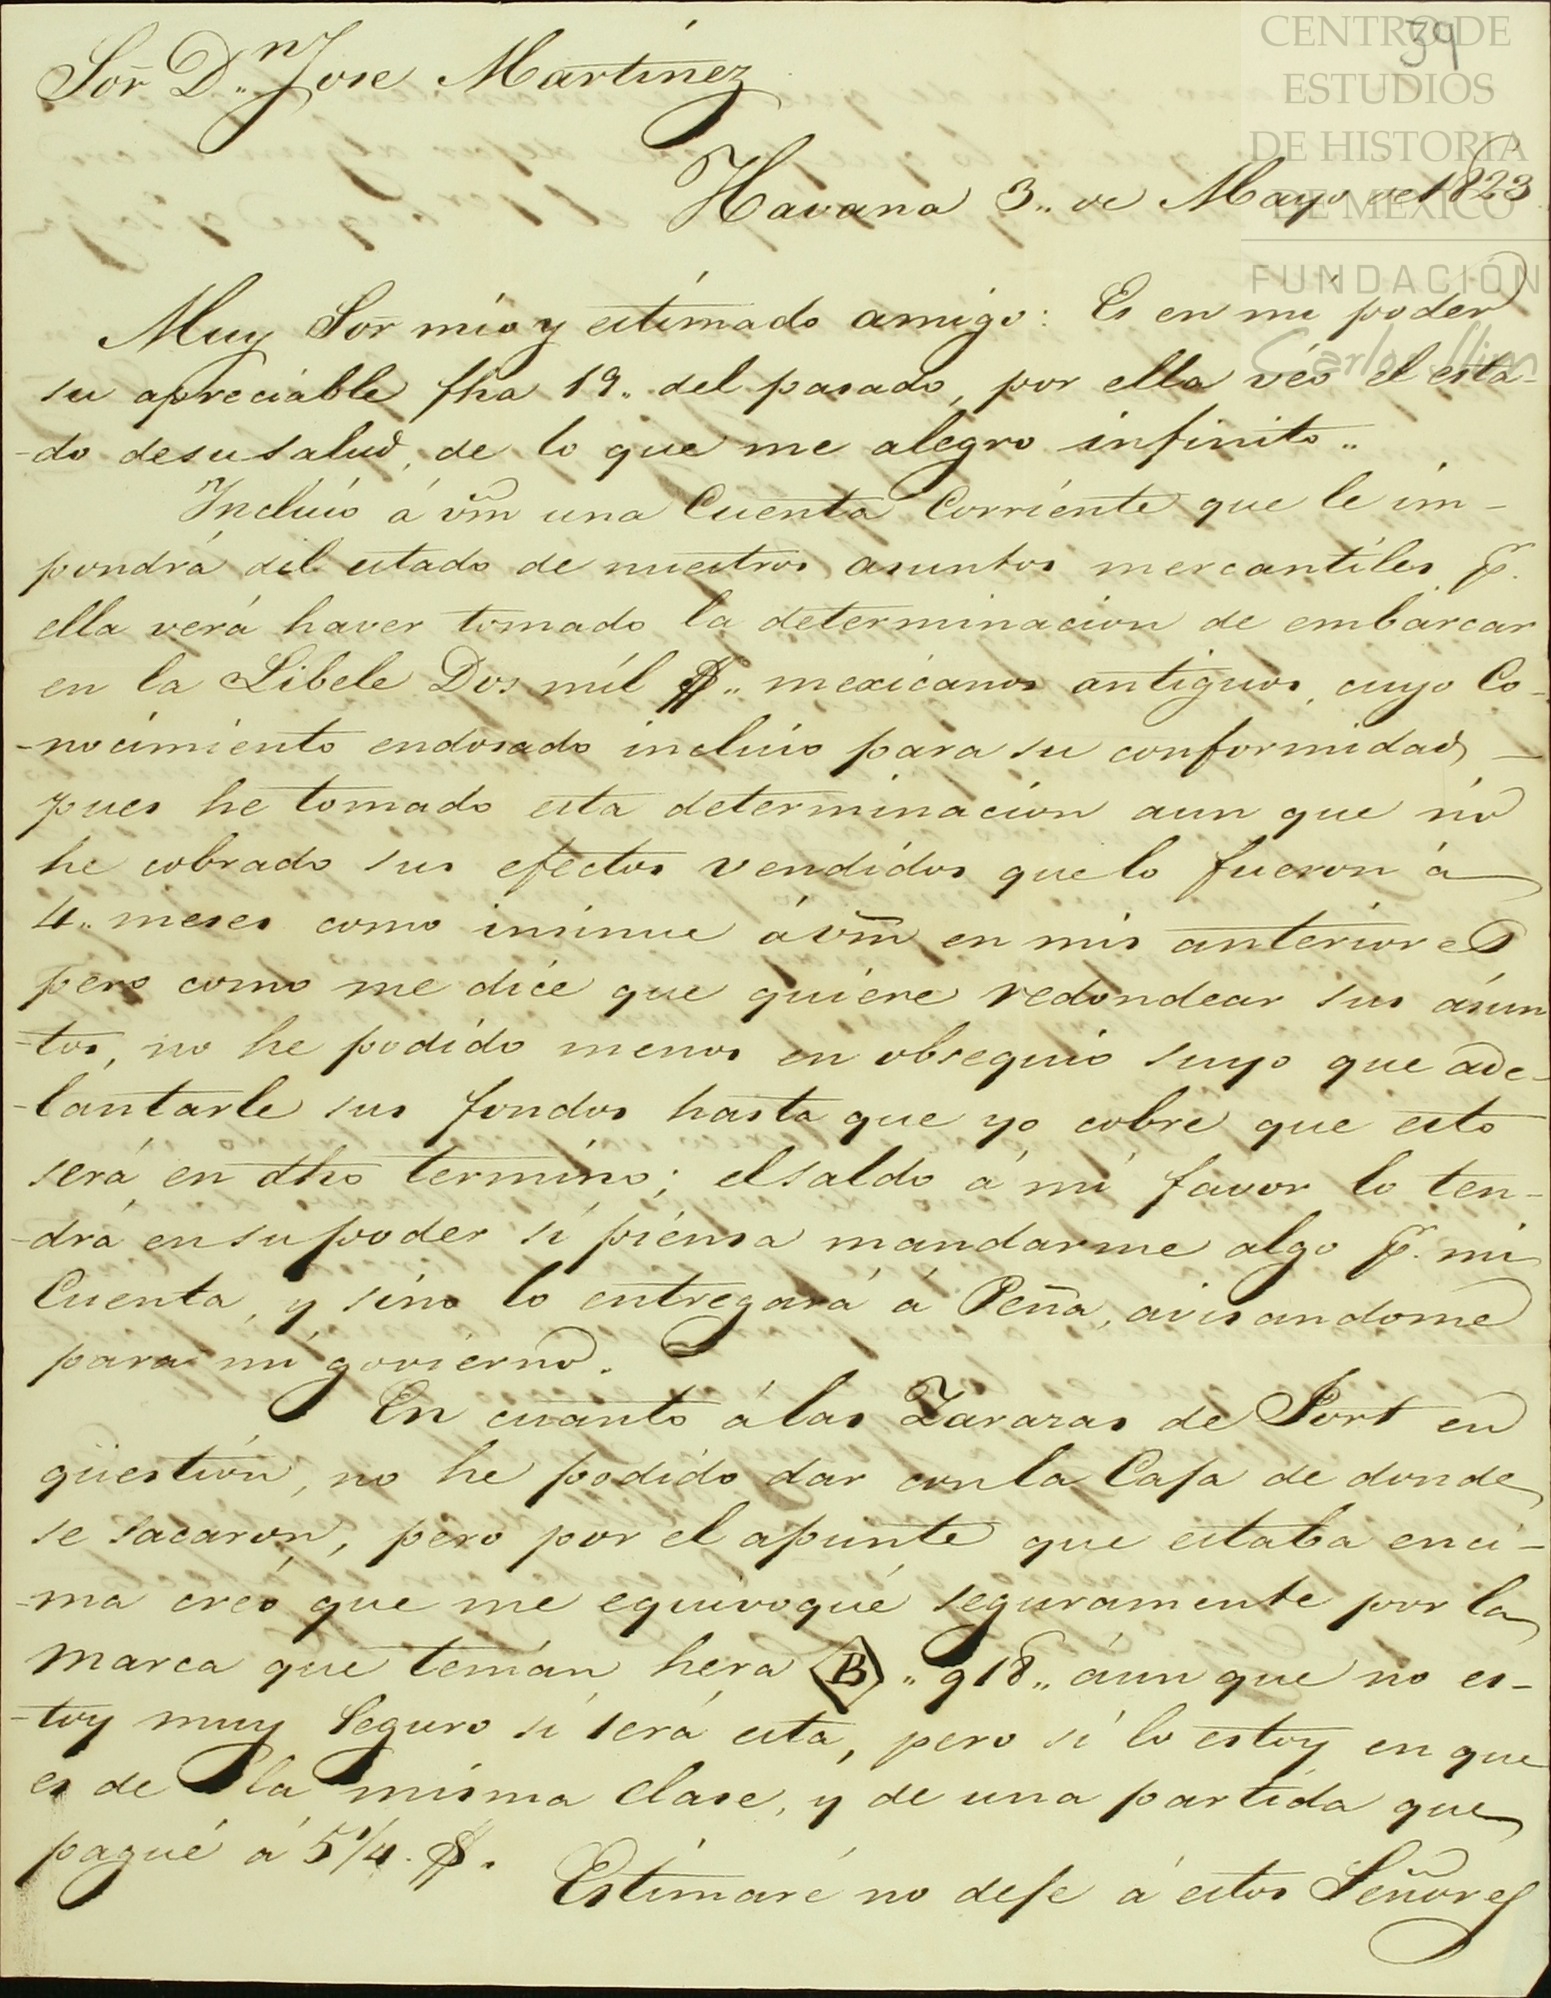 39
CENTRO DE
ESTUDIOS
DE HISTORIA
DE MEXICO
FUNDACIÓN
Carlos Slim
Sor. Dn. Jose Martinez
Havana 3.. de Mayo de 1823
Muy Sor mio y estimado amigo: Es en mi poder
su apreciable fha 19.. del pasado, por ella véo el esta-
-do desusalud, de lo que me alegro infinito..
Incluio á vm̃ una Cuenta Corriente que le im-
pondrá del estado de nuestros asuntos mercantiles p.
ella verá haver tomado la determinacion de embarcar
en la Libele Dos mil $.. mexicanos antiguos, cuyo Co-
-nocimiento endosado incluio para su conformidad,
pues he tomado esta determinacion aun que nó
he cobrado sus efectos vendidos que lo fueron á
4.. meses como insinue á vm̃ en mis anteriores
pero como me dice que quiere redondear sus asun
-tos, no he podido menos en obsequio suyo que ade-
-lantarle sus fondos hasta que yo cobre que esto
será en dho termino; el saldo á mi favor lo ten-
-drá en su poder si piensa mandarme algo p. mi
Cuenta, y sino lo entregará á Peña, avisandome
para mi govierno.
En cuanto á las Zarazas de Port en
qüestión, no he podido dar con la Casa de donde
se sacaron, pero por el apunte que estaba enci-
-ma creó que me equivoqué seguramente por la
marca que tenian hera B .. 918.. áun que no es-
-toy muy Seguro si será esta, pero si lo estoy en que
es de la misma clase, y de una partida que
pagué á 5 1/4. $.
Estimaré no defe á estos Señores